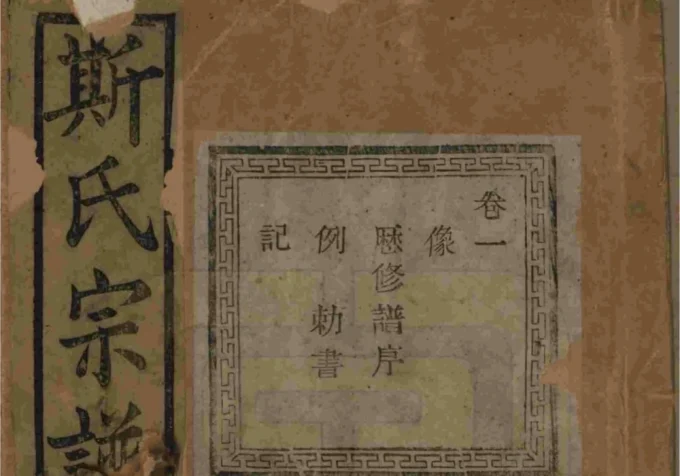 斯氏宗譜
卷一
像
歷修譜序
例 勅書
記